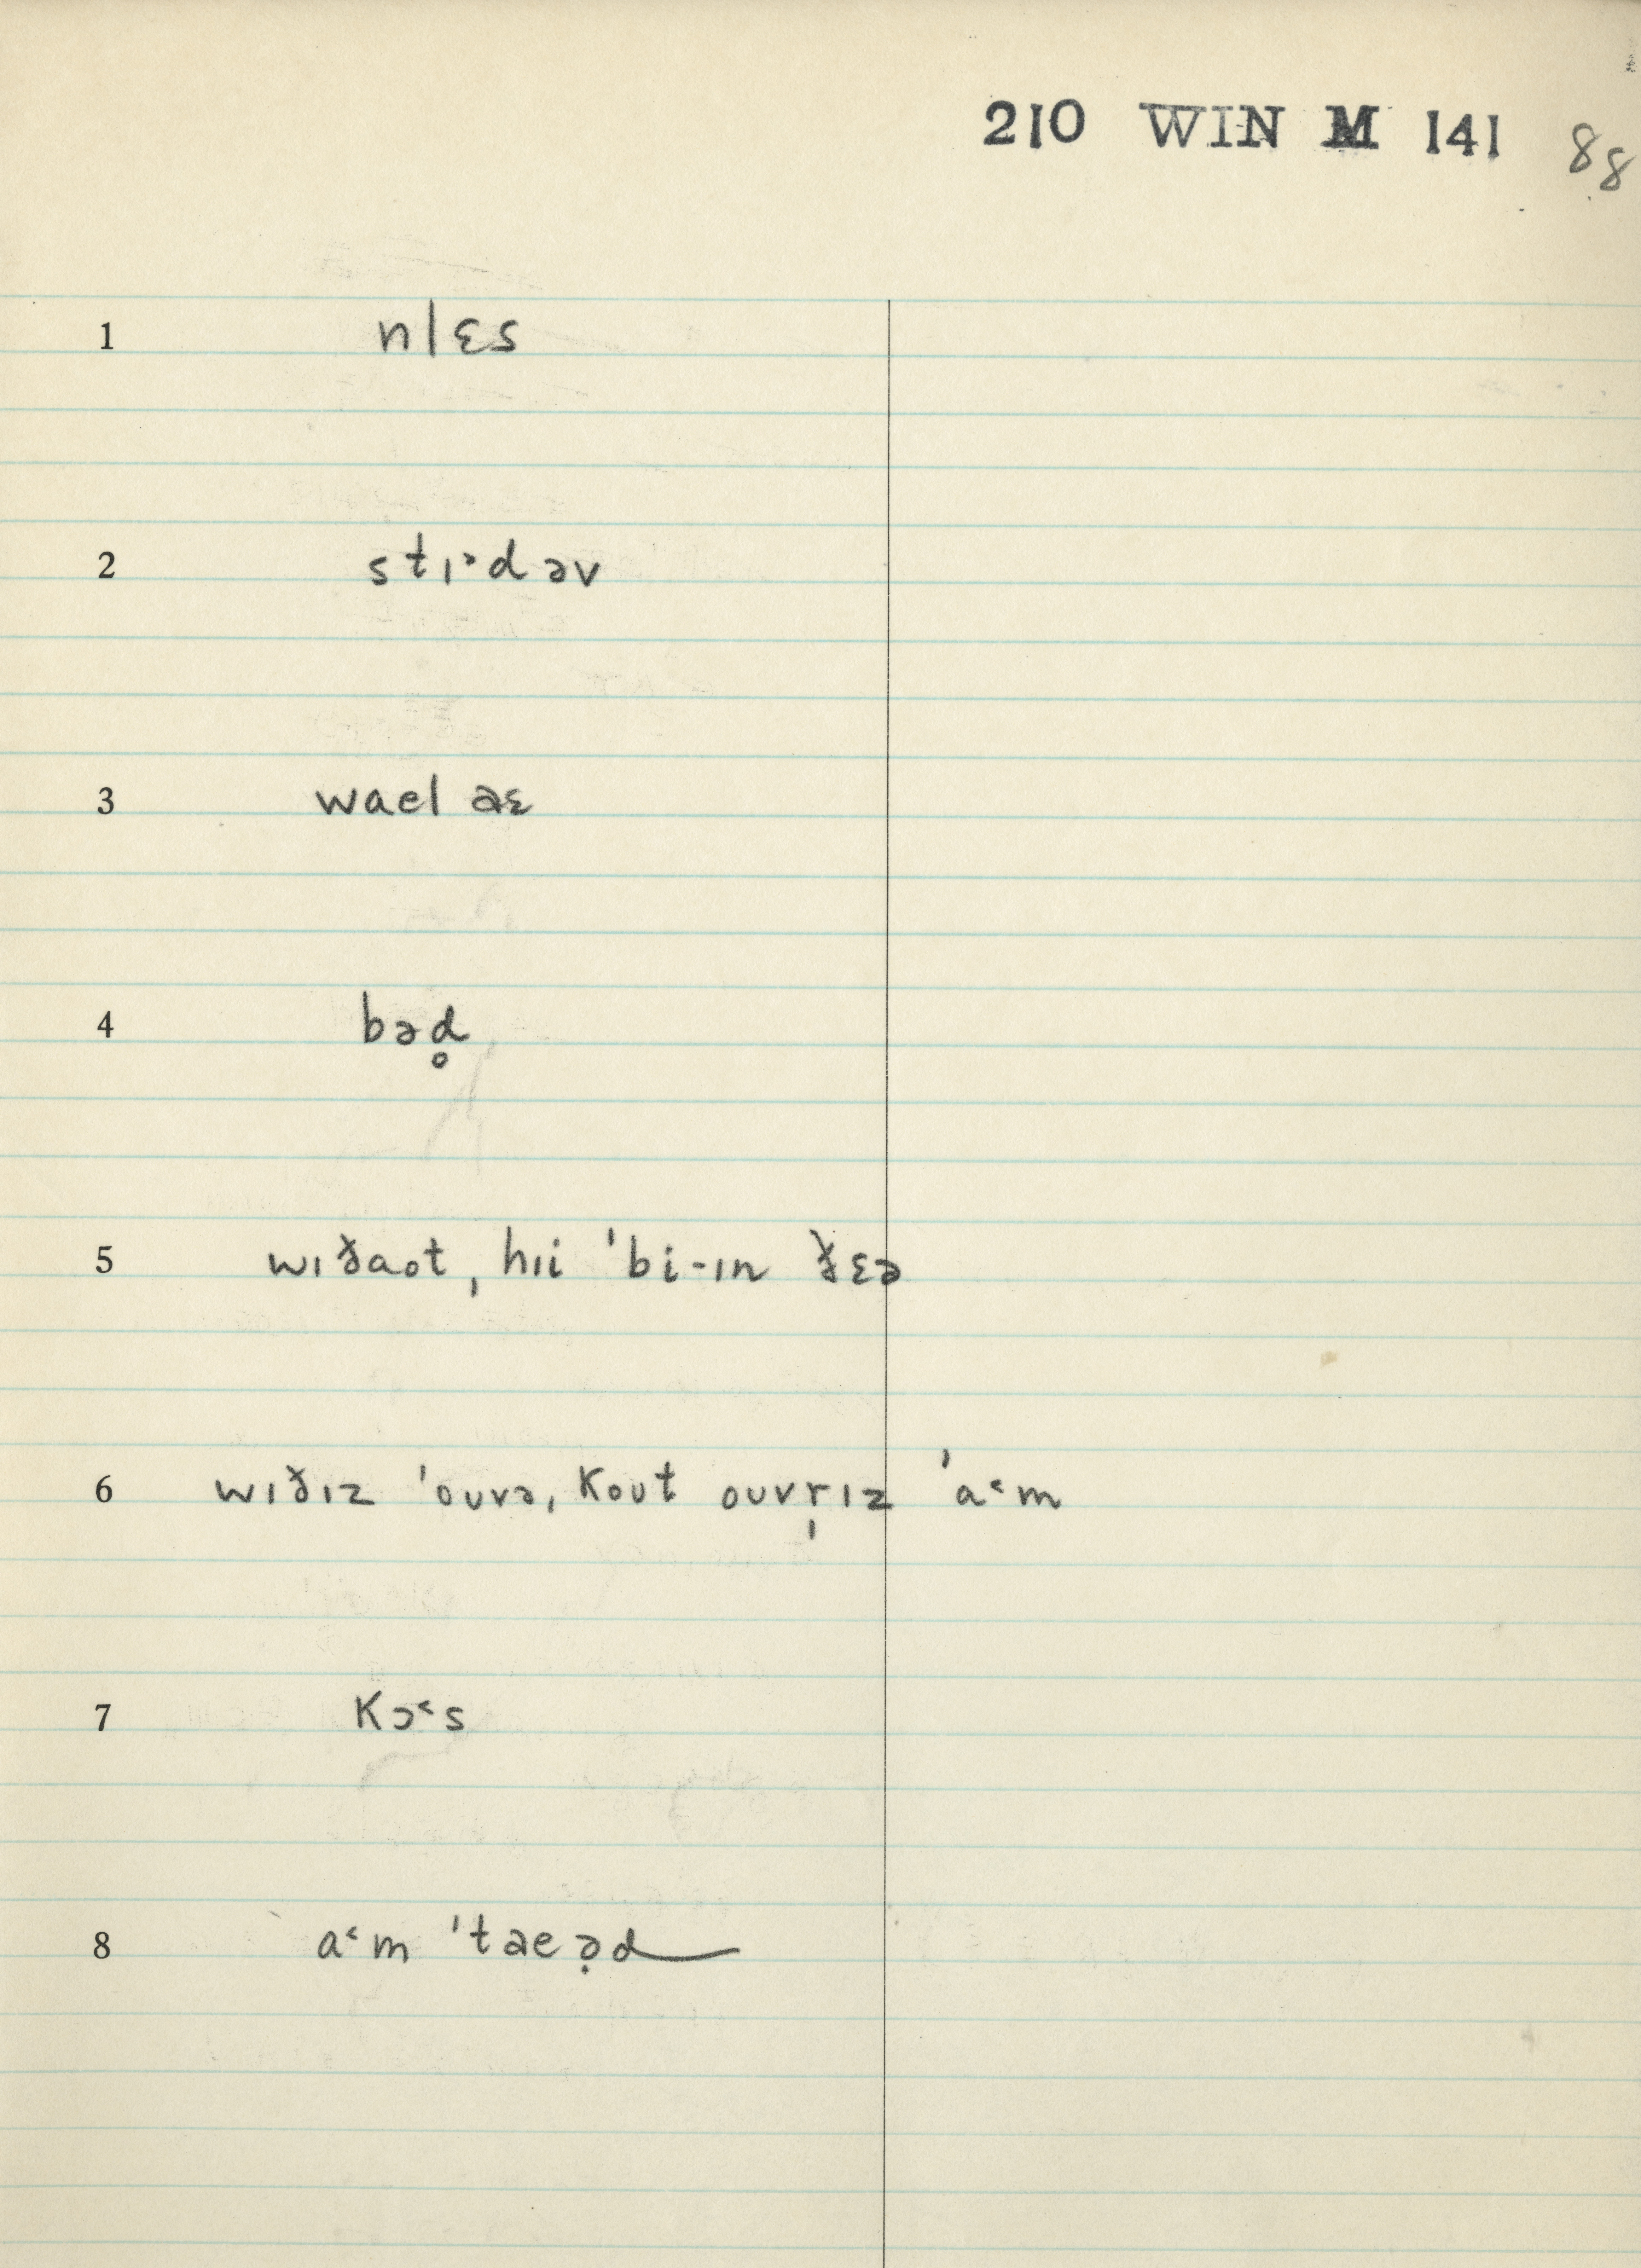 210 WIN M 141 88
1 nlɛs
2 stɪ˒dəv
3 wael əɛ
4 bəd̥
5 wɪðaot, hɪi ˈbi-ɪn ðɛə
6 wɪðɪz ˈouvə, kout ouvr̩ɪz ˈa˓m
7 kɔ˓s
8 a˓m ˈtaeə̣d